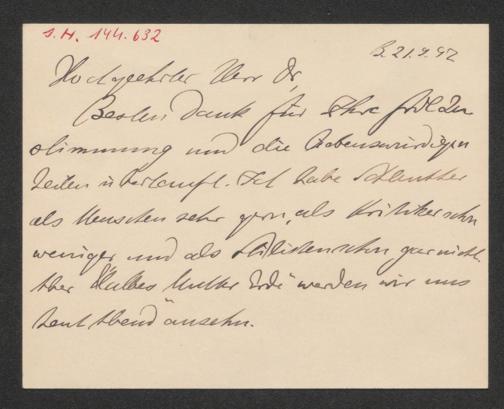 I.N. 144.632
B. 21.9.97
Hochgeehrter Herr Dr,
Besten Dank für Ihre frdl. Zu
stimmung und die liebenswürdigen
Zeilen überhaupt. Ich habe Schlenther
als Menschen sehr gern, als Kritiker schon
weniger und als Stilisten schon gar nicht.
Aber Halbes Mutter Erde" werden wir uns
heut Abend ansehn.